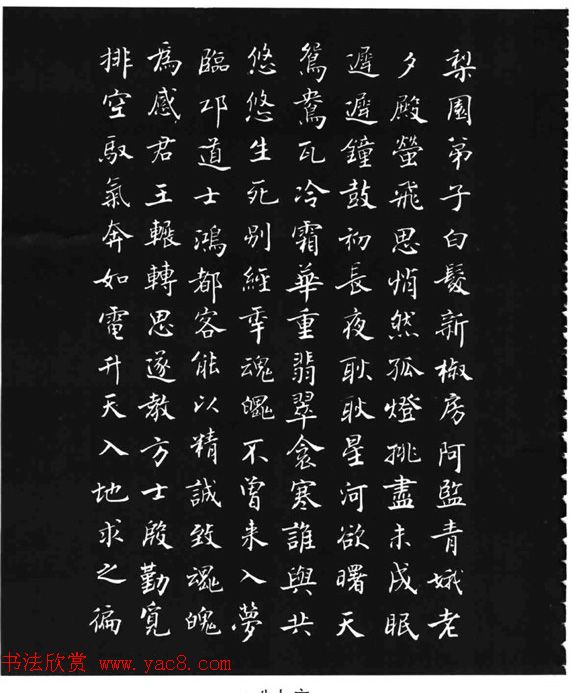 梨園弟子白髮新椒房阿監青娥老
夕殿螢飛思悄然孤燈挑盡未成眠
遲遲鐘鼓初長夜耿耿星河欲曙天
鴛鴦瓦冷霜華重翡翠衾寒誰與共
悠悠生死別經年魂魄不曾来入夢
臨邛道士鴻都客能以精誠致魂魄
為感君王輾轉思遂教方士殷勤覓
排空馭氣奔如電升天入地求之徧
书法欣赏 www.yac8.com